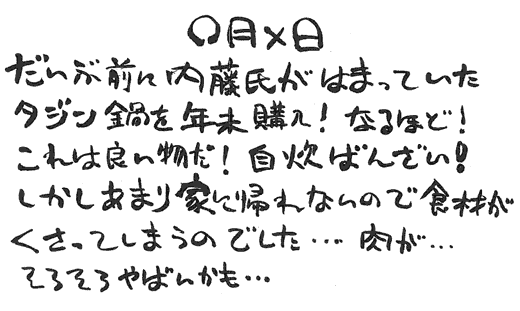 〇月×日
だいぶ前に内藤氏がはまっていた
タジン鍋を年末購入！なるほど！
これは良い物だ！自炊ばんざい！
しかしあまり家に帰れないので食材が
くさってしまうのでした…肉が…
そろそろやばいかも…